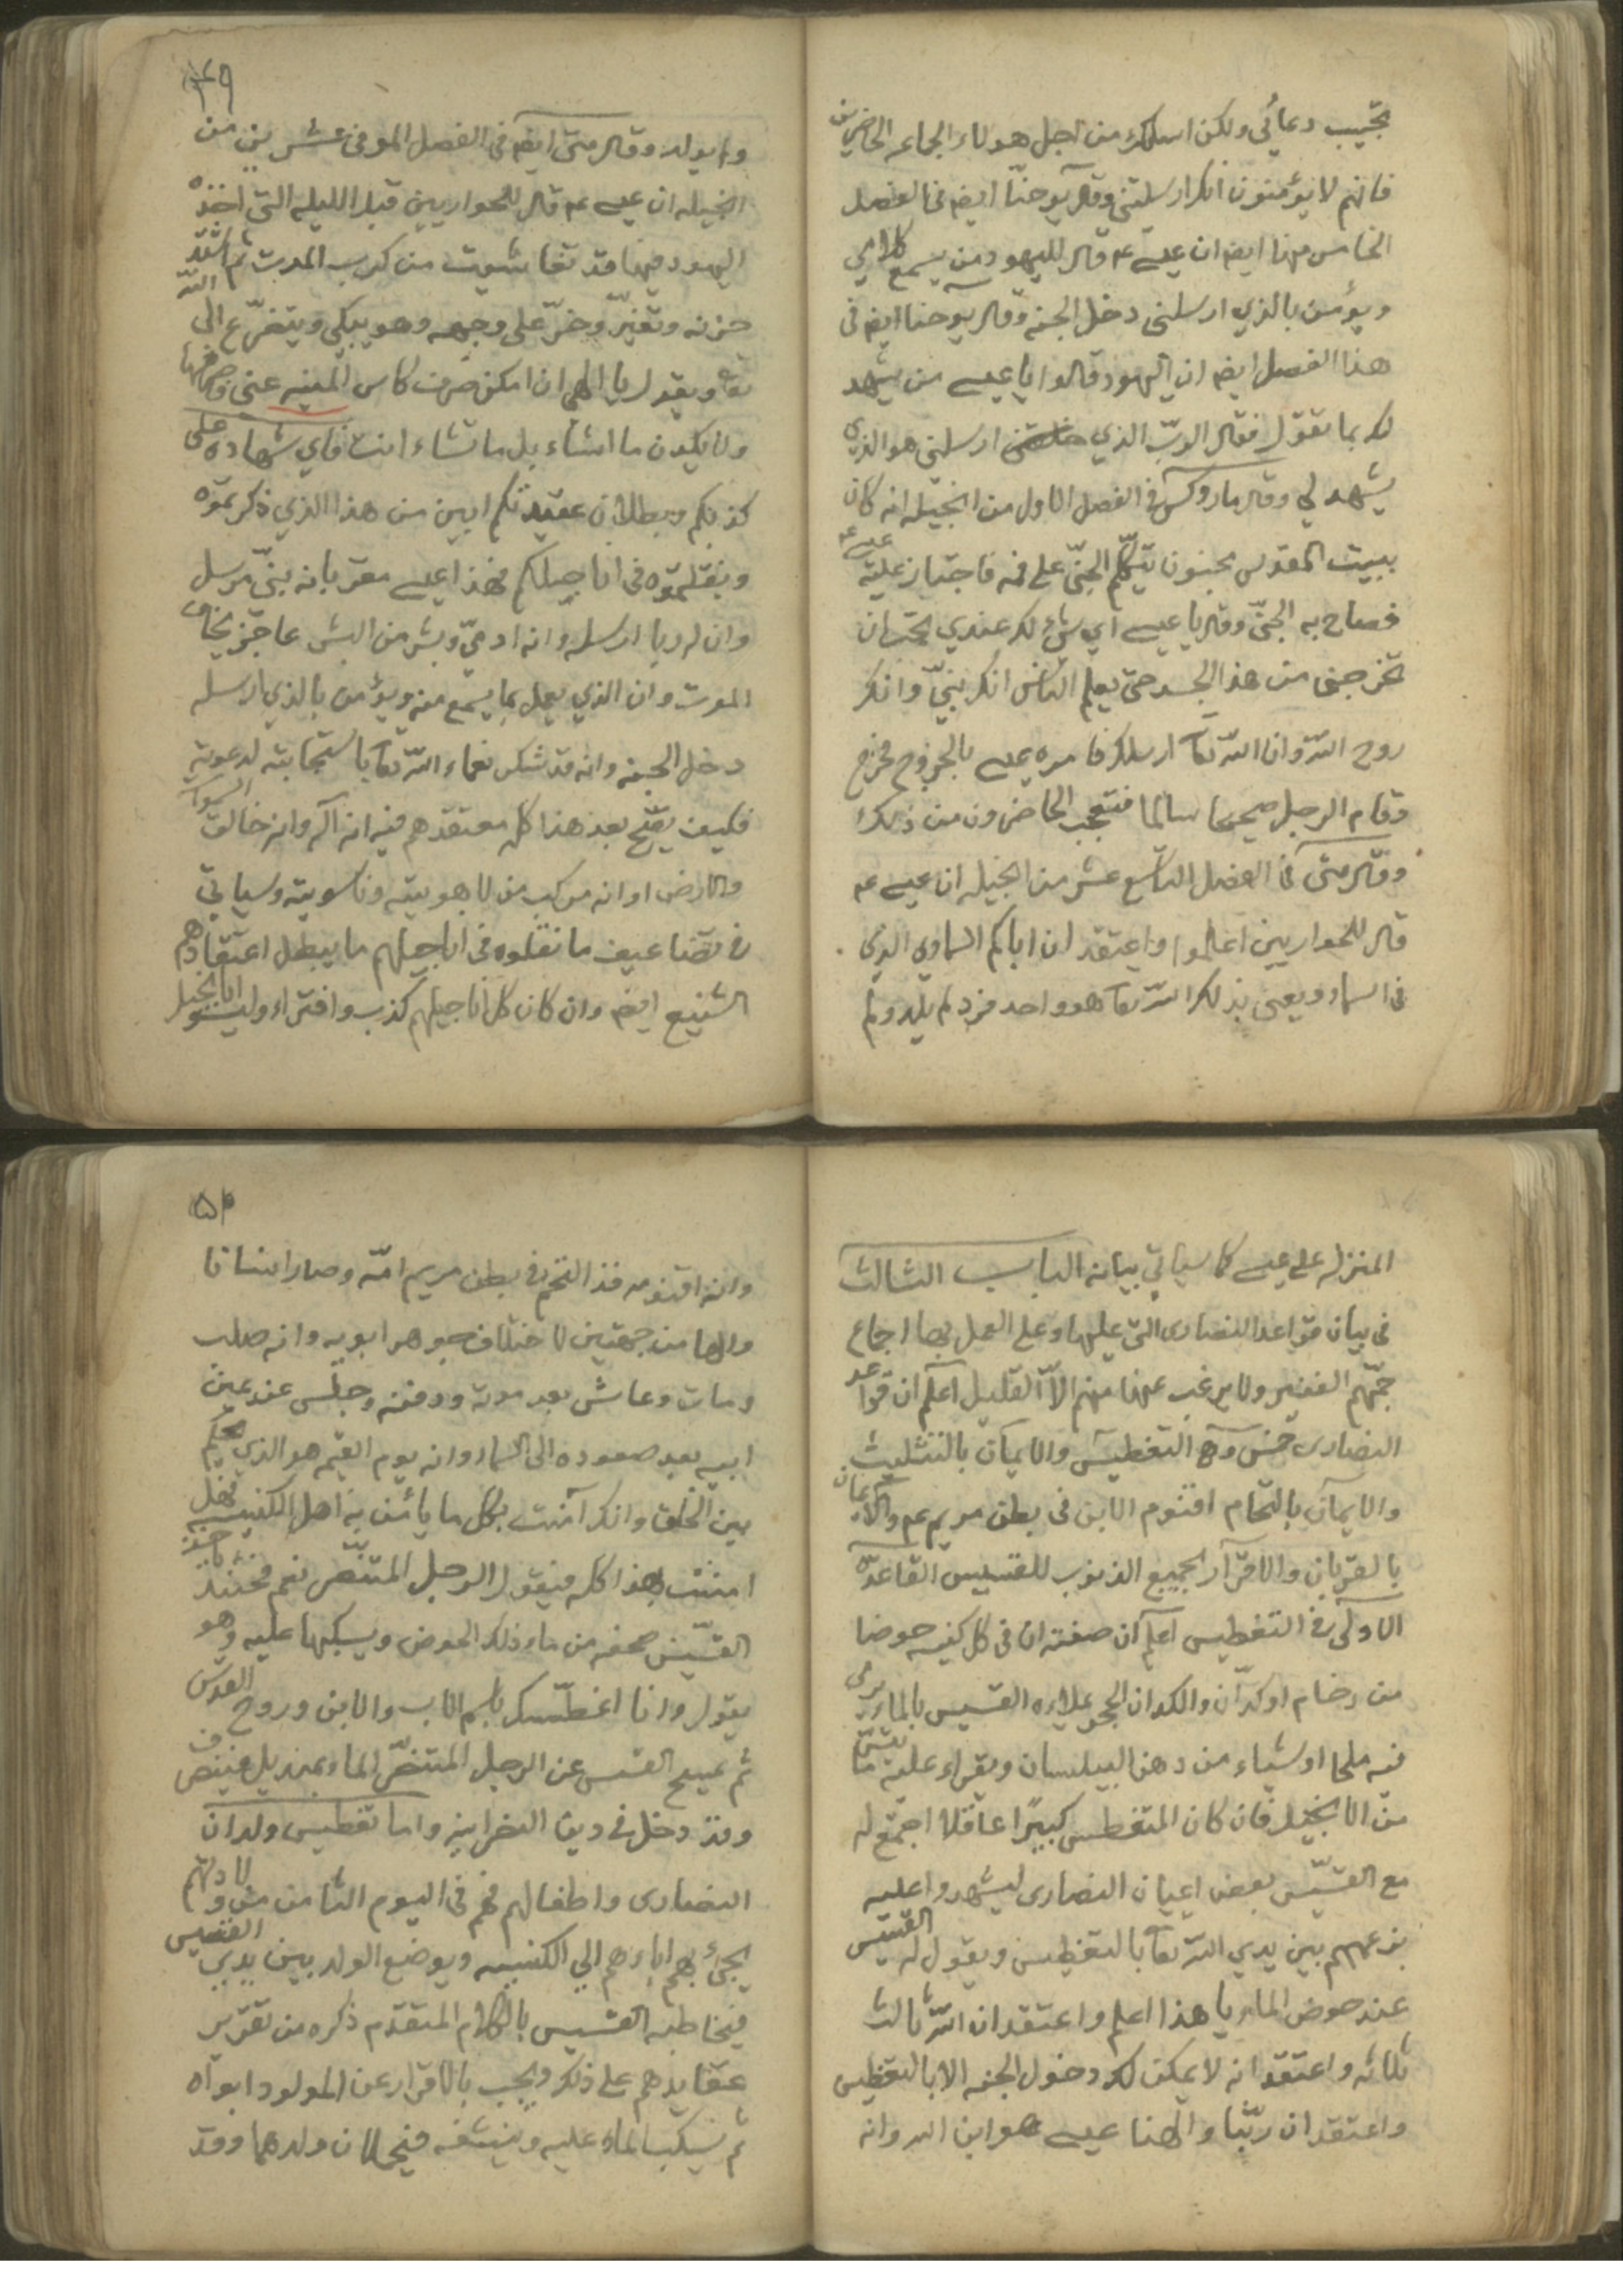 تجيب دعائي ولكن اسلك من اجل هولاء الجماعه الحاضرين
فانهم لا يؤمنون انك ارسلتني وقال يوحنا ايضا في الفصل
الخامس منها ايضا ان عيسى ع قال لليهود من يسمع كلامي
ويؤمن بالذي ارسلني دخل الجنه وقال يوحنا ايضا في
هذا الفصل ايضا ان اليهود قالوا يا عيسى من يشهد
لك بما تقول فقال الرب الذي ارسلني هو الذي
يشهد لي وقال ماروكس في الفصل الاول من انجيله انه كان
ببيت المقدس مجنون يتكلم الجني على فمه فاجتاز عليه عيسى ع
فصاح به الجني وقال يا عيسى اي شئ لك عندي تحب ان
تخرجني من هذا الجسد حتى يعلم الناس انك نبي وانك
روح الله وان الله تعا ارسلك فامره عيسى بالخروج فخرج
وقام الرجل صحيحا سالما فتعجب الحاضرون من ذلك
وقال متى في الفصل التاسع عشر من انجيله ان عيسى ع
قال للحواريين اعلموا واعتقد ان اباكم السماوي الذي
في السماء ويعني بذلك الله تعا هو واحد فرد لم يلد ولم
٤٩
ولم يولد وقال متى ايضا في الفصل الموفى عشرين من
انجيله ان عيسى ع قال للحواريين قبل الليله التي اخذه
اليهود فيها قد تغاشيت من كرب الموت ثم اشتد
حزنه وتغير وخر على وجهه وهو يبكي ويتضرع الى الله
تعا ويقول يا الهي ان امكن صرف كاس المنيه عني فاصرفها
ولا يكون ما اشاء بل ما تشاء انت فاي شهاده على
كذبكم وبطلان عقيدتكم ابين من هذا الذي ذكرتموه
ونقلتموه في اناجيلكم فهذا عيسى مقر بانه نبي مرسل
وان له ربا ارسله وانه ادمي وبشر من البشر عاجز يخاف
الموت وان الذي يعمل بما يسمع منه ويؤمن بالذي ارسله
دخل الجنه وانه قد شكر نعماء الله تعا باستجابته لدعوته
فكيف يصح بعد هذا كله معتقدهم فيه انه اله وانه خالق السموات
والارض او انه مركب من لاهوتيه وناسوتيه وسياتي
في تضاعيف ما نقلوه في اناجيلهم ما يبطل اعتقادهم
الشنيع ايضا وان كان كل اناجيلهم كذب وافتراء وليسوا انا انجيل
المنزل على عيسى كما سياتي بيانه الباب الثالث
في بيان قواعد النصارى التي عليها وعلى العمل بها اجماع
جمهم الغفير ولا يرغب عنها منهم الا القليل اعلم ان قواعد
النصارى خمس وهى التغطيس والايمان بالتثليث
والايمان بالتحام اقنوم الابن في بطن مريم ع والايمان
بالقربان والاقرار بجميع الذنوب للقسيس القاعده
الاولى في التغطيس اعلم ان صفته ان في كل كنيسه حوضا
من رخام او كدان والكدان الحجر يملاءه القسيس بالماء يرمى
فيه ملحا او شياء من دهن البيلسان ويقراء عليه ما تيسر
من الانجيل فان كان المتغطس كبيرا عاقلا اجتمع له
مع القسيس بعض اعيان النصارى ليشهدوا عليه
بزعمهم بين يدي الله تعا بالتغطيس ويقول له القسيس
عند حوض الماء يا هذا اعلم واعتقد ان الله ثالث
ثلاثه واعتقد انه لا يمكن لك دخول الجنه الا بالتغطيس
واعتقد ان ربنا والهنا عيسى هو ابن الله وانه
٥٠
وان اقنومه قد التحم في بطن مريم امه وصار انسانا
والها من جهتين لاختلاف جوهر ابويه وانه صلب
ومات وعاش بعد موته ودفنه وجلس عند يمين
ابيه بعد صعوده الى السماء وانه يوم القيمه هو الذي يحكم
بين الخلق وانك آمنت بكل ما يأمن به اهل الكنيسه فهل
امنت بهذا كله فيقول الرجل المتنصر نعم فحينئذ ياخذ
القسيس صحفه من ماء ذلك الحوض ويسكبها عليه وهو
يقول وانا اغطسك باسم الاب والابن وروح القدس
ثم يمسح القس عن الرجل المتنصر الماء بمنديل فينصرف
وقد دخل في دين النصرانيه واما تغطيس ولدان
النصارى واطفالهم فهم في اليوم الثامن من ولادتهم
يجئ بهم اباءهم الي الكنيسه ويوضع الولد بين يدي القسيس
فيخاطبه القسيس بالكلام المتقدم ذكره من تقرير
عقايدهم على ذلك ويجيب بالاقرار عن المولود ابواه
ثم يسكب الماء عليه وينشفه فيحملان ولدهما وقد